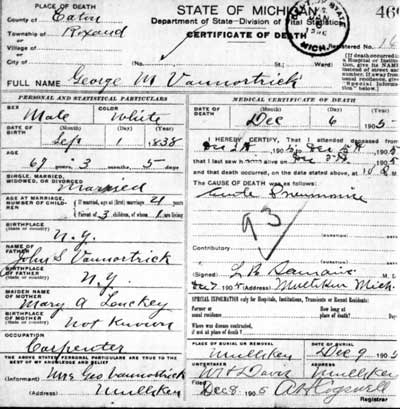 PLACE OF DEATH
County of Eaton
Township of Roxand
Village of
City of
STATE OF MICHIGAN
Department of State—Division of Vital Statistics
CERTIFICATE OF DEATH
(No. St.; Ward)
Registered No.
FULL NAME George M Vannortrick
PERSONAL AND STATISTICAL PARTICULARS
SEX Male
COLOR White
DATE OF BIRTH (Month) (Day) (Year)
Sept 1 1838
AGE
67 years 3 months 5 days
SINGLE, MARRIED, WIDOWED, OR DIVORCED
Married
AGE AT MARRIAGE, NUMBER OF CHILDREN
If married, age at (first) marriage 21 years
Parent of 3 children, of whom 1 are living
BIRTHPLACE (State or country)
N.Y.
NAME OF FATHER
John S Vannortrick
BIRTHPLACE OF FATHER (State or country)
N.Y.
MAIDEN NAME OF MOTHER
Mary A
BIRTHPLACE OF MOTHER (State or country)
Not Known
OCCUPATION
Carpenter
THE ABOVE STATED PERSONAL PARTICULARS ARE TRUE TO THE BEST OF MY KNOWLEDGE AND BELIEF
(Informant) Mrs Geo Vannortrick
(Address) Mulliken
MEDICAL CERTIFICATE OF DEATH
DATE OF DEATH (Month) (Day) (Year)
Dec 6 1905
I HEREBY CERTIFY, That I attended deceased from
that I last saw h alive on
and that death occurred, on the date stated above, at M.
The CAUSE OF DEATH was as follows:
Acute Pneumonia
93
(DURATION) DAYS
Contributory
(DURATION) DAYS
(Signed) M. D.
Dec 7 1905 (Address) Mulliken Mich.
SPECIAL INFORMATION only for Hospitals, Institutions, Transients or Recent Residents:
Former or usual residence
How long at place of death? Days
Where was disease contracted, if not at place of death?
PLACE OF BURIAL OR REMOVAL
Mulliken
DATE OF BURIAL
Dec 9 1905
UNDERTAKER
Davis
(Address)
Mulliken
Filed Dec 8 1905
Registrar